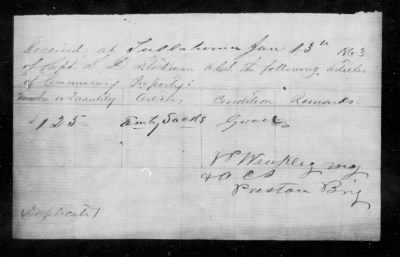 Received, at Tullahoma Jan 13th 1863
of Capt S. H. Stockman A.Q.M. the following articles
of Commissary Property:
Number or Quantity Articles Condition Remarks.
125 Empty Sacks Good
Maj
& A C S
Preston Brig
(Duplicate)